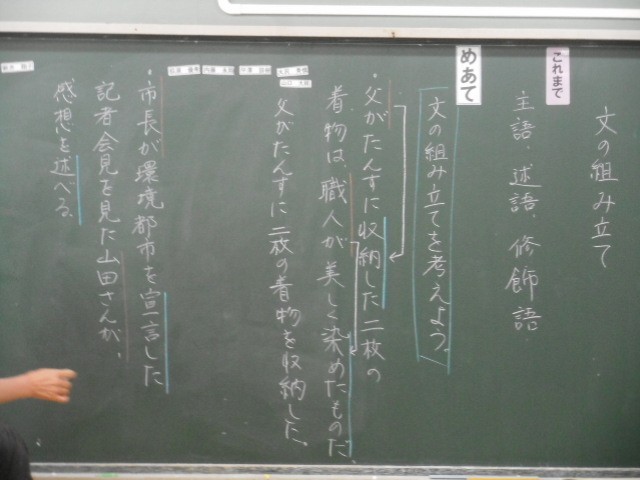 文の組み立て
これまで
主語、述語、修飾語
めあて
文の組み立てを考えよう。
・父がたんすに収納した二枚の
着物は、職人が美しく染めたものだ。
父がたんすに二枚の着物を収納した。
・市長が環境都市を宣言した
記者会見を見た山田さんが、
感想を述べる。